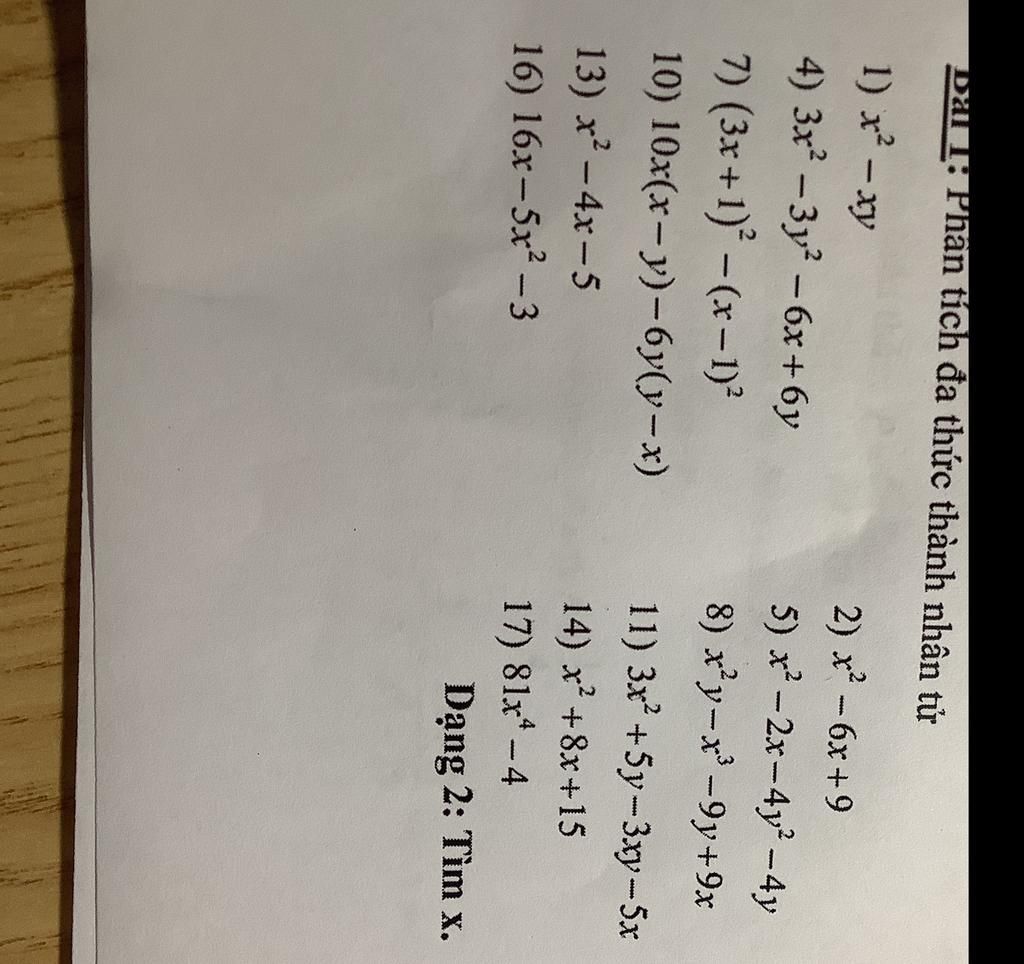 Bài 1: Phân tích đa thức thành nhân tử
1) x² − xy 2) x² − 6x + 9
4) 3x² − 3y² − 6x + 6y 5) x² − 2x − 4y² − 4y
7) (3x + 1)² − (x − 1)² 8) x²y − x³ − 9y + 9x
10) 10x(x − y) − 6y(y − x) 11) 3x² + 5y − 3xy − 5x
13) x² − 4x − 5 14) x² + 8x + 15
16) 16x − 5x² − 3 17) 81x⁴ − 4
Dạng 2: Tìm x.